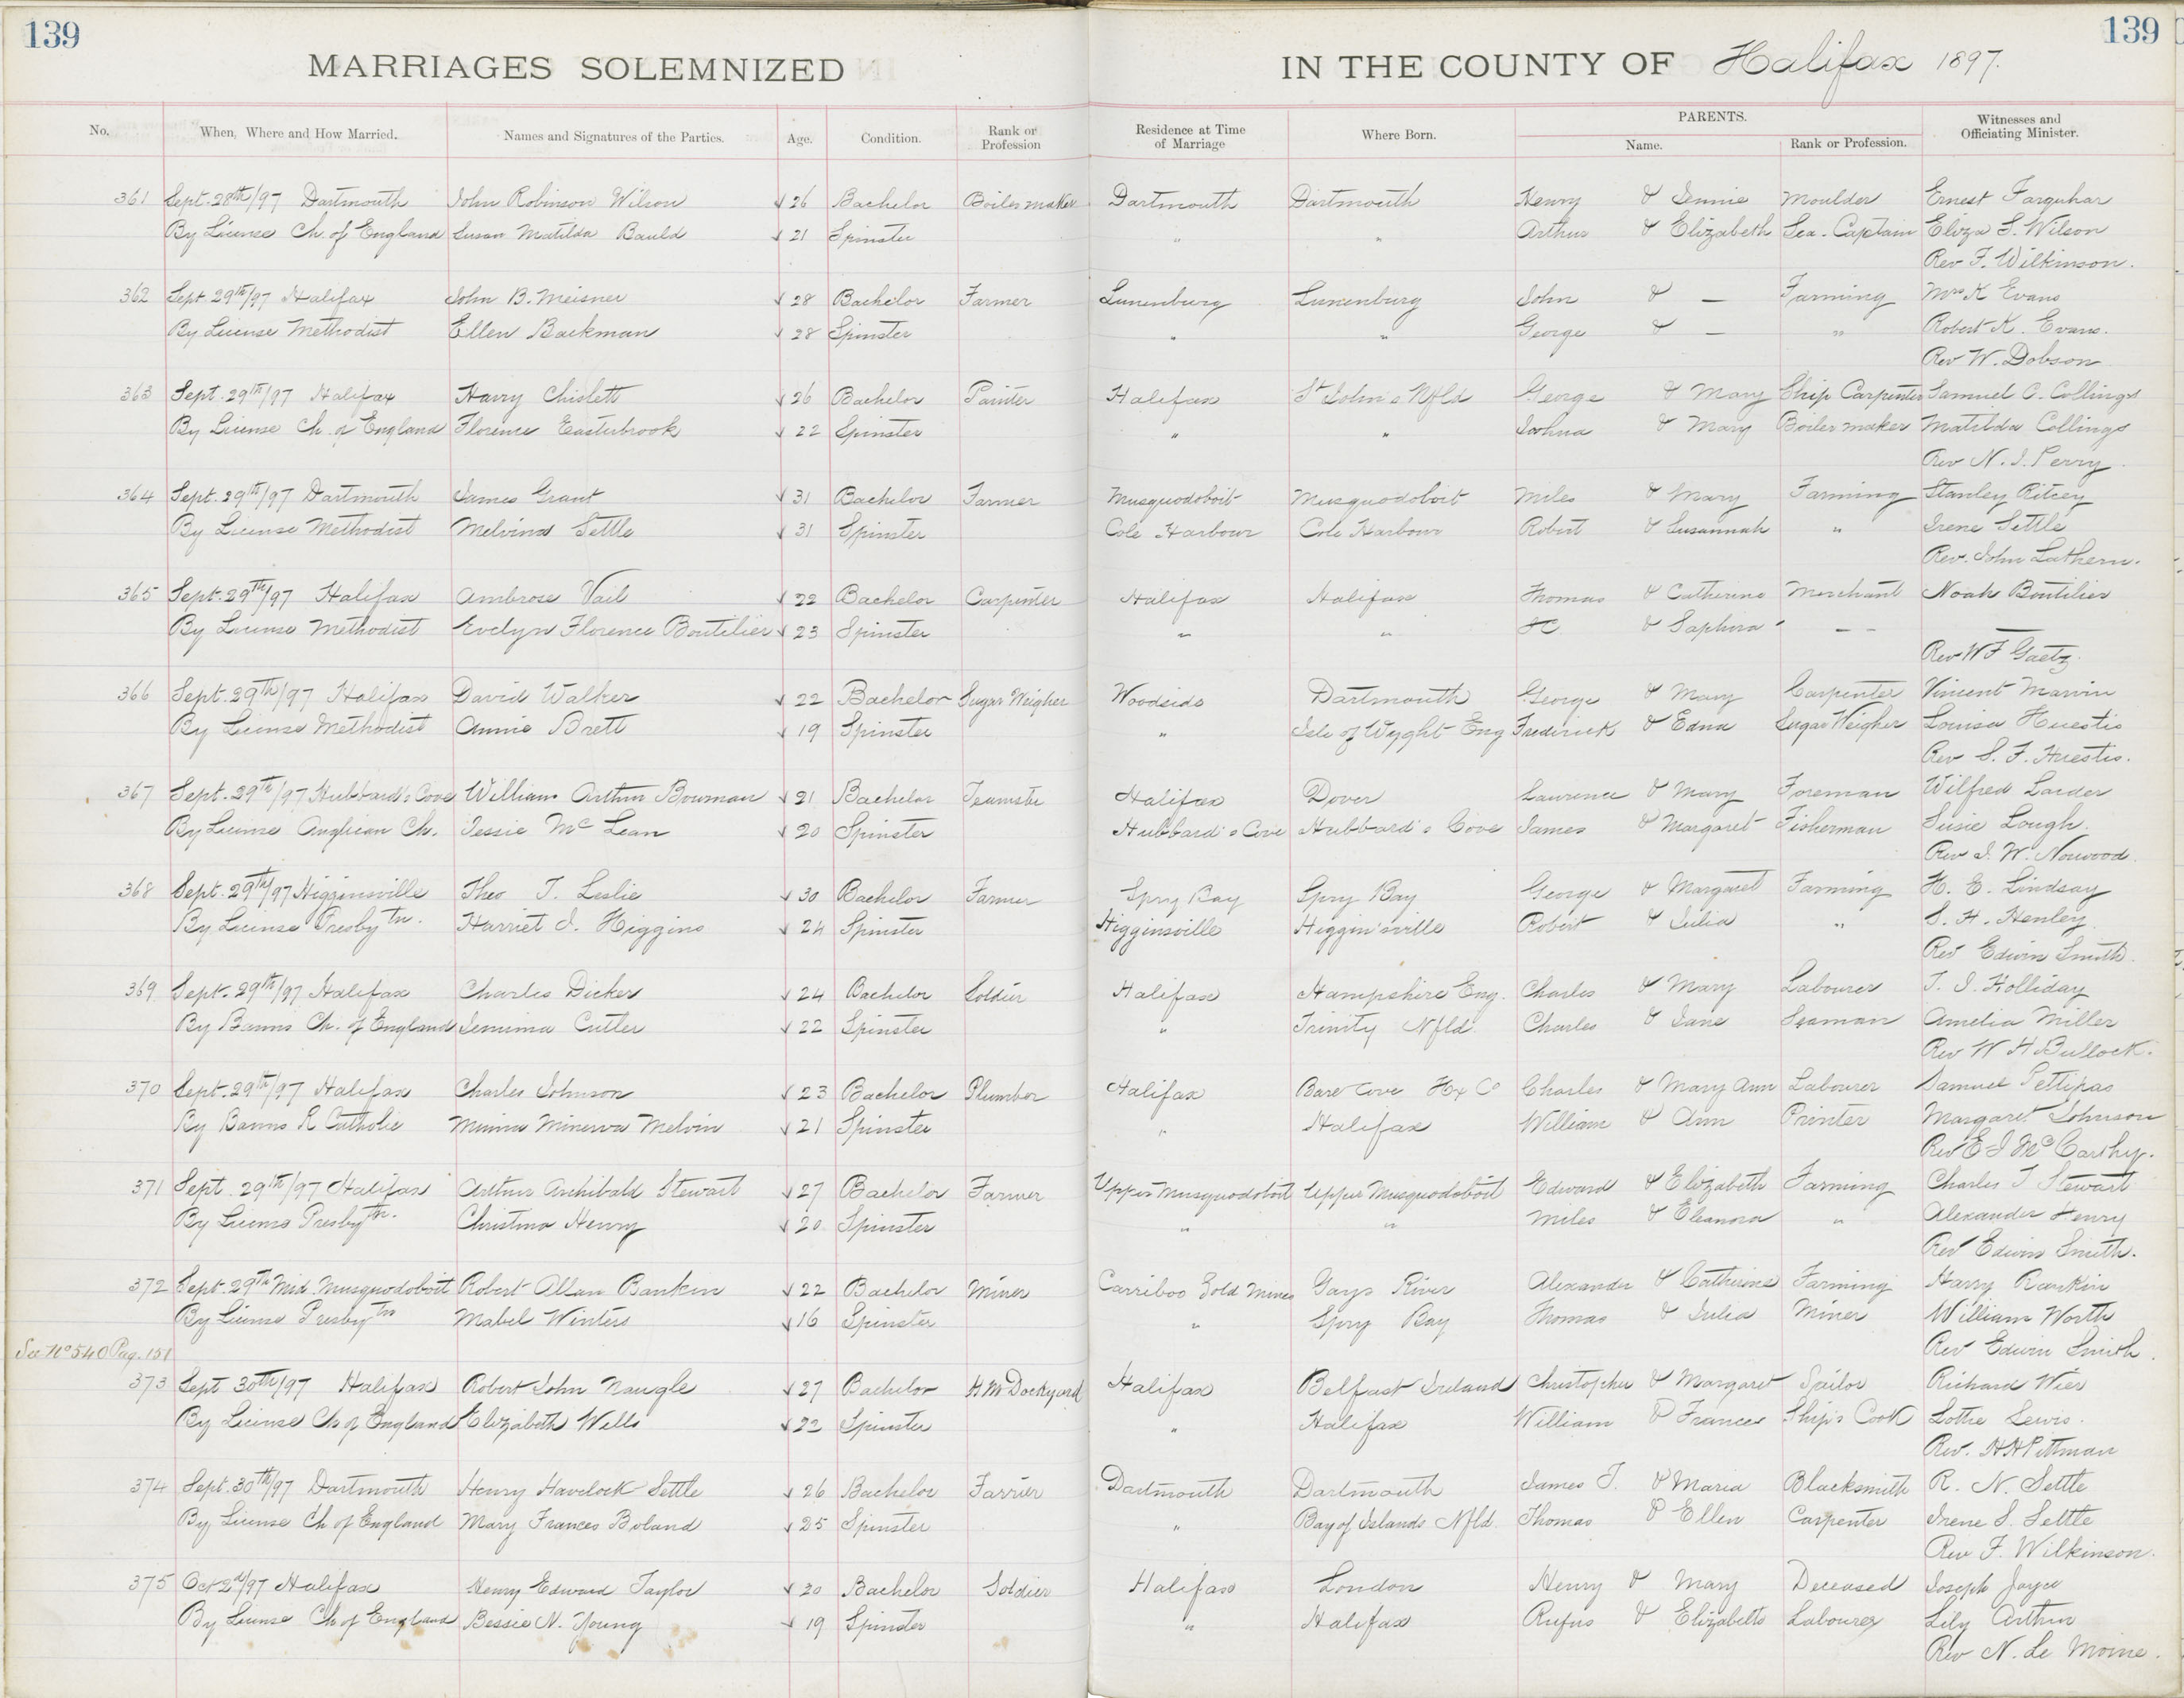 139 139
MARRIAGES SOLEMNIZED IN THE COUNTY OF Halifax 1897.
No. When, Where and How Married. Names and Signatures of the Parties. Age. Condition. Rank or Profession Residence at Time of Marriage Where Born. PARENTS. Name. Rank or Profession. Witnesses and Officiating Minister.
361 Sept. 28th/97 Dartmouth John Robinson Wilson √ 26 Bachelor Boiler maker Dartmouth Dartmouth Henry & Jennie Moulder Ernest Farquhar
By License Ch. of England Susan Matilda Bauld √ 21 Spinster " " Arthur & Elizabeth Sea-Captain Eliza S. Wilson
Rev F. Wilkinson.
362 Sept. 29th/97 Halifax John B. Meisner √ 28 Bachelor Farmer Lunenburg Lunenburg John & — Farming Mrs K Evans
By License Methodist Ellen Backman √ 28 Spinster " " George & — " Robert K. Evans.
Rev W. Dobson
363 Sept. 29th/97 Halifax Harry Chislett √ 26 Bachelor Painter Halifax St John's Nfld George & Mary Ship Carpenter Samuel C. Collings
By License Ch. of England Florence Easterbrook √ 22 Spinster " " Joshua & Mary Boiler maker Matilda Collings
Rev N. I. Perry.
364 Sept. 29th/97 Dartmouth James Grant √ 31 Bachelor Farmer Musquodoboit Musquodoboit Miles & Mary Farming Stanley Ritcey
By License Methodist Melvina Settle √ 31 Spinster Cole Harbour Cole Harbour Robert & Susannah " Irene Settle
Rev. John Lathern.
365 Sept. 29th/97 Halifax Ambrose Vail √ 22 Bachelor Carpenter Halifax Halifax Thomas & Catherine Merchant Noah Boutilier
By License Methodist Evelyn Florence Boutilier √ 23 Spinster " " & Saphira — — —
Rev W F Gaetz.
366 Sept. 29th/97 Halifax David Walker √ 22 Bachelor Sugar Weigher Woodside Dartmouth George & Mary Carpenter Vincent Marvin
By License Methodist Annie Brett √ 19 Spinster " Isle of Wyght Eng Frederick & Edna Sugar Weigher Louisa Huestis
Rev S. F. Huestis.
367 Sept. 29th/97 Hubbard's Cove William Arthur Bowman √ 21 Bachelor Teamster Halifax Dover Laurence & Mary Foreman Wilfred Larder
By License Anglican Ch. Jessie Mc Lean √ 20 Spinster Hubbard's Cove Hubbard's Cove James & Margaret Fisherman Susie Lough.
Rev J. W. Norwood.
368 Sept. 29th/97 Higginsville Theo T. Leslie √ 30 Bachelor Farmer Spry Bay Spry Bay George & Margaret Farming H. E. Lindsay
By License Presbytn. Harriet J. Higgins √ 24 Spinster Higginsville Higgin'sville Robert & Julia " S. H. Henley
Rev Edwin Smith.
369 Sept. 29th/97 Halifax Charles Dicker √ 24 Bachelor Soldier Halifax Hampshire Eng. Charles & Mary Labourer T. J. Holliday
By Banns Ch. of England Jemima Cutler √ 22 Spinster " Trinity Nfld. Charles & Jane Seaman Amelia Miller
Rev W H Bullock.
370 Sept. 29th/97 Halifax Charles Johnson √ 23 Bachelor Plumber Halifax Bare Cove Hx Co Charles & Mary Ann Labourer Samuel Pettipas
By Banns R Catholic Minnie Minerva Melvin √ 21 Spinster " Halifax William & Ann Printer Margaret Johnson
Rev E J McCarthy.
371 Sept. 29th/97 Halifax Arthur Archibald Stewart √ 27 Bachelor Farmer Upper Musquodoboit Upper Musquodoboit Edward & Elizabeth Farming Charles T Stewart
By License Presbytn. Christina Henry √ 20 Spinster " " Miles & Eleanora " Alexander Henry
Rev Edwin Smith.
372 Sept. 29th Mid. Musquodoboit Robert Allan Rankin √ 22 Bachelor Miner Carriboo Gold Mines Gays River Alexander & Catherine Farming Harry Rankin
By License Presbytn Mabel Winters √ 16 Spinster " Spry Bay Thomas & Julia Miner William Worth
Rev Edwin Smith.
See No 540 Pag. 151
373 Sept 30th/97 Halifax Robert John Naugle √ 27 Bachelor H.M. Dockyard Halifax Belfast Ireland Christopher & Margaret Sailor Richard Wier
By License Ch of England Elizabeth Wells √ 22 Spinster " Halifax William & Frances Ship's Cook Lottie Lewis.
Rev. H H Pittman
374 Sept. 30th/97 Dartmouth Henry Havelock Settle √ 26 Bachelor Farrier Dartmouth Dartmouth James T. & Maria Blacksmith R. N. Settle
By License Ch of England Mary Frances Boland √ 25 Spinster " Bay of Islands Nfld. Thomas & Ellen Carpenter Irene S. Settle
Rev F. Wilkinson.
375 Oct 2d/97 Halifax Henry Edward Taylor √ 20 Bachelor Soldier Halifax London Henry & Mary Deceased Joseph Joyce
By License Ch of England Bessie N. Young √ 19 Spinster " Halifax Rufus & Elizabeth Labourer Lily Arthur
Rev N. Le Moine.